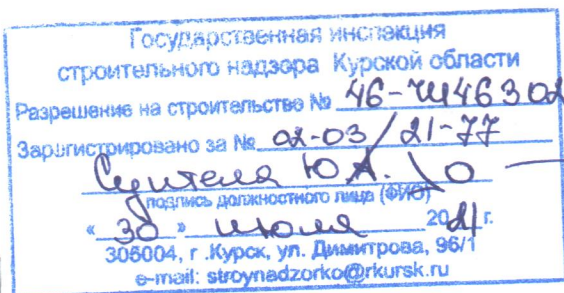 Государственная инспекция
строительного надзора Курской области
Разрешение на строительство №
Зарегистрировано за № 02-03/21-77
Ю.А.
подпись должностного лица (ФИО)
« 30 » июля 2021 г.
305004, г .Курск, ул. Димитрова, 96/1
e-mail: stroynadzorko@rkursk.ru